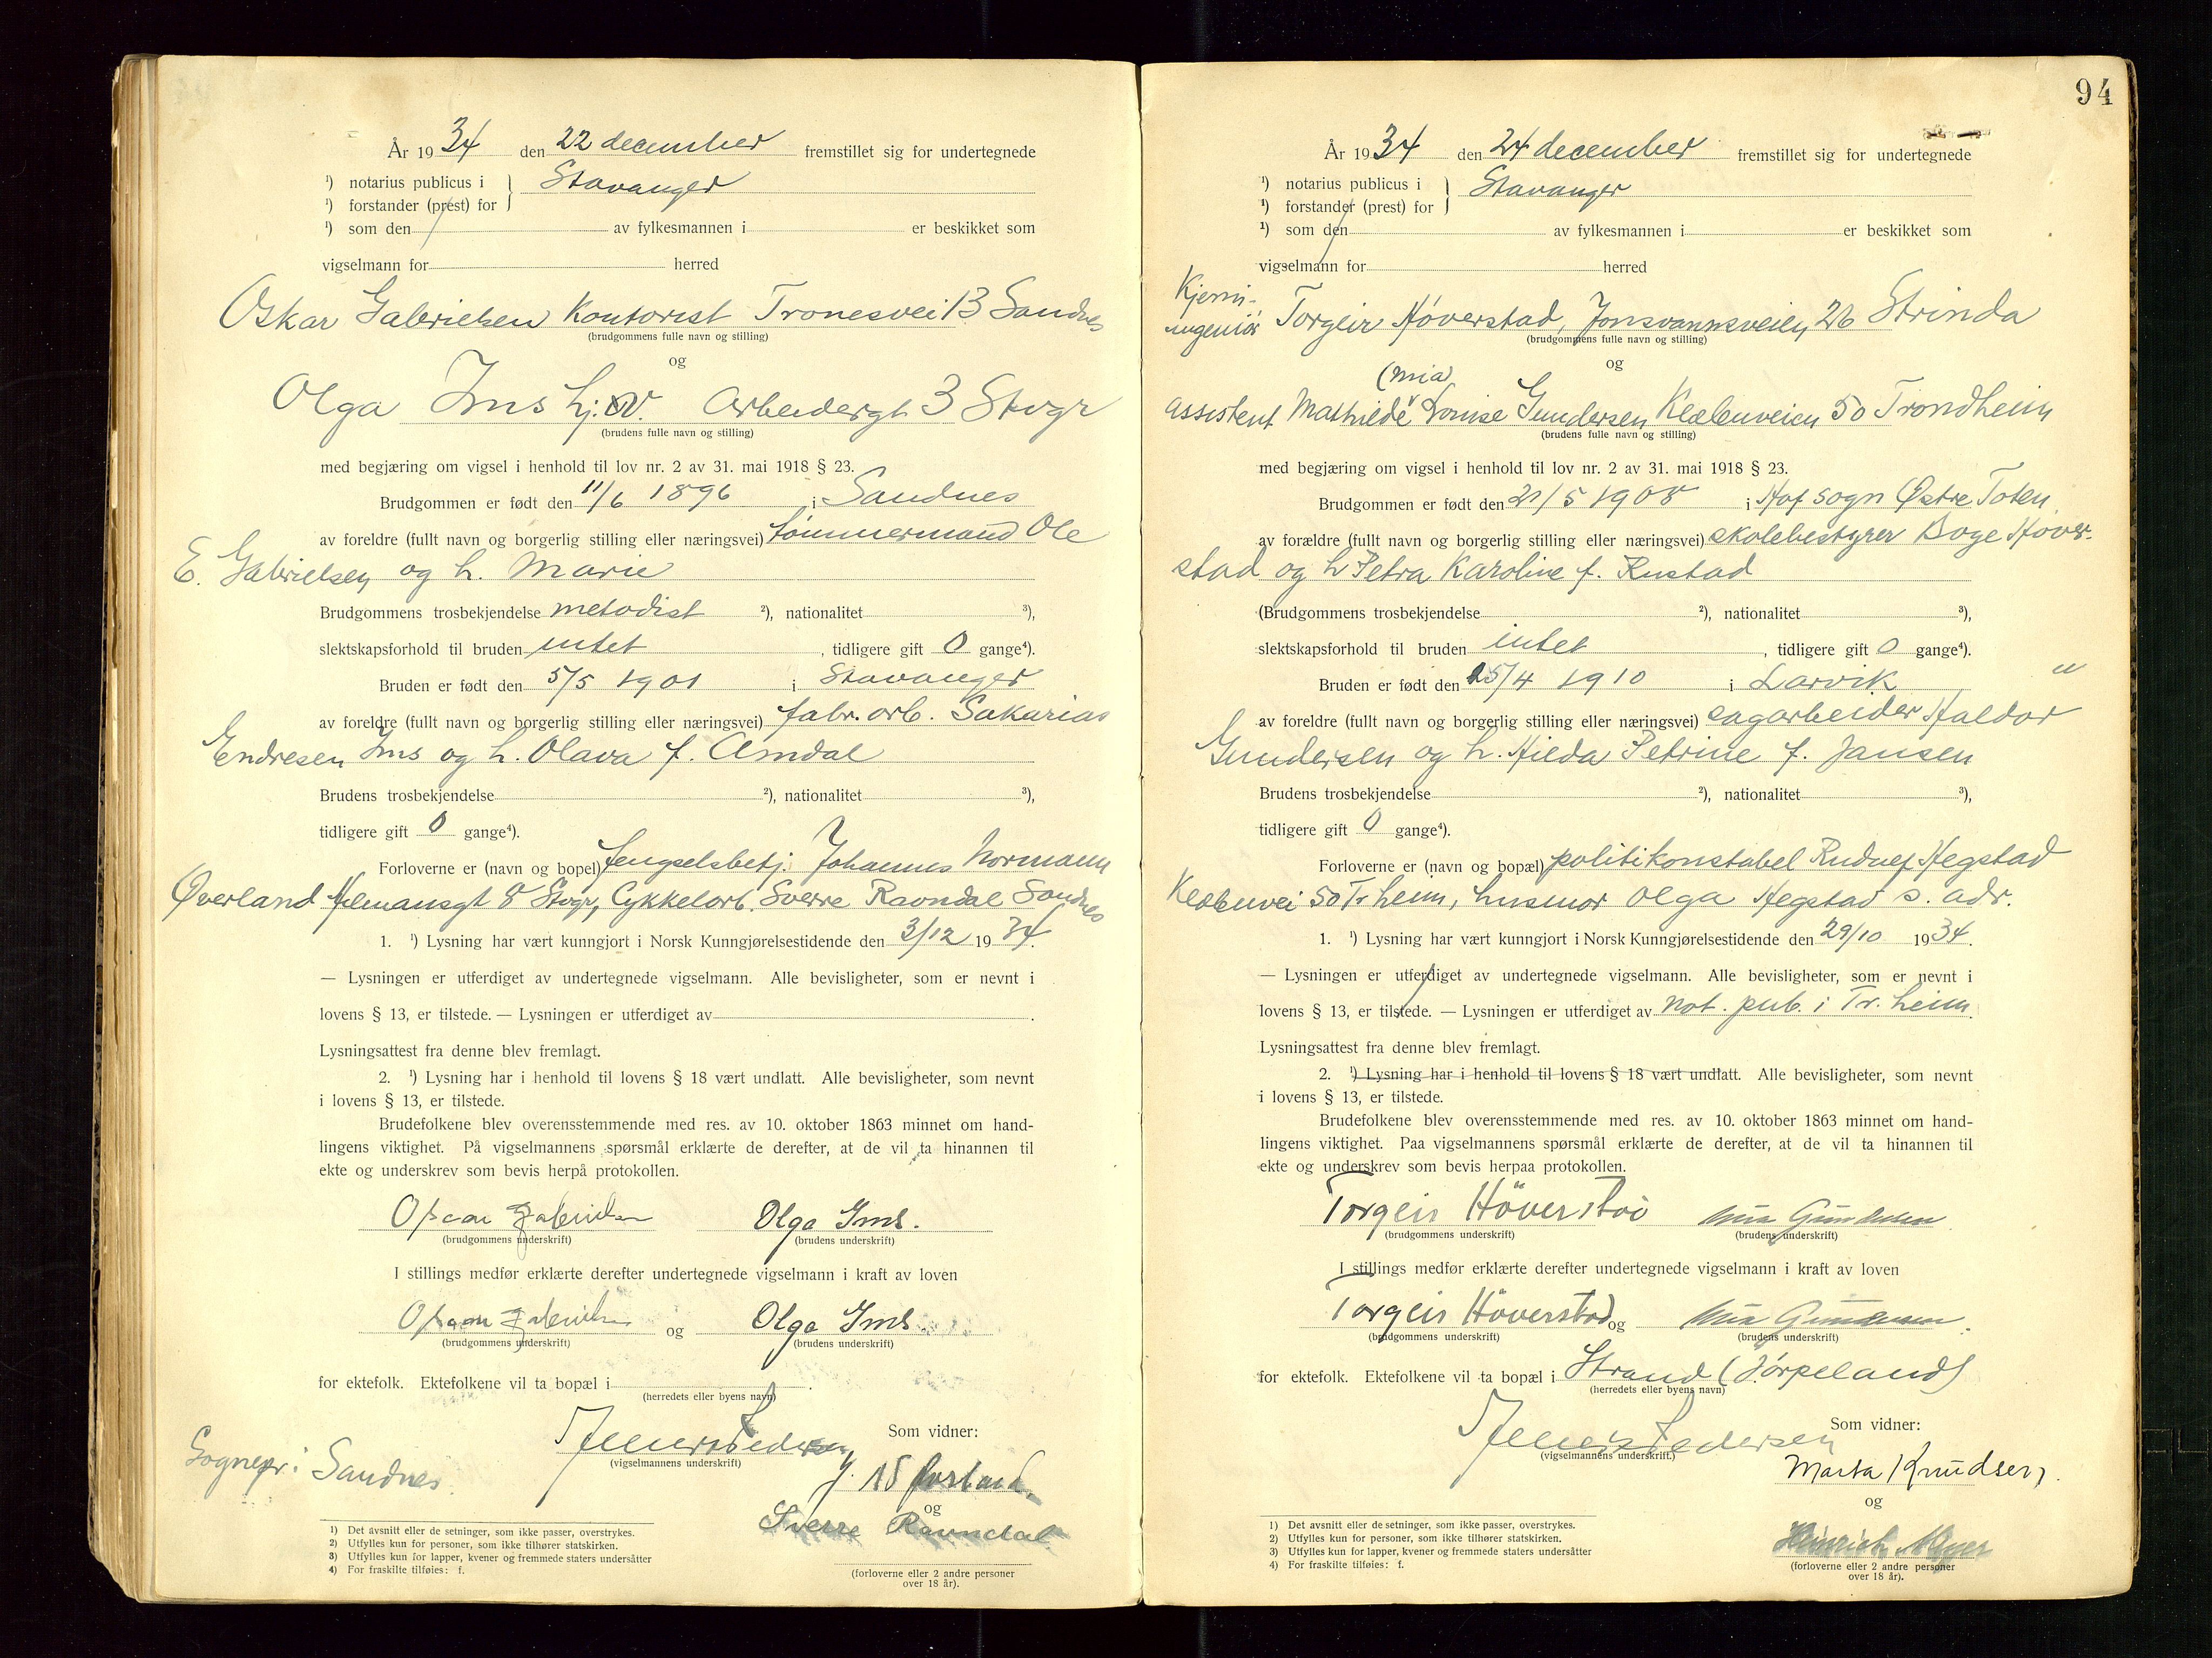 År 1934 den 22 december fremstillet sig for undertegnede
¹) notarius publicus i } Stavanger
¹) forstander (prest) for
¹) som den av fylkesmannen i er beskikket som
vigselmann for herred
Oskar Gabrielsen Kontorist Tronesvei 13 Sandnes
(brudgommens fulle navn og stilling)
og
Olga Ims hj.v. Arbeidergt 3 Stvgr
(brudens fulle navn og stilling)
med begjæring om vigsel i henhold til lov nr. 2 av 31. mai 1918 § 23.
Brudgommen er født den 11/6 1896 i Sandnes
av foreldre (fullt navn og borgerlig stilling eller næringsvei) tømmermand Ole
E. Gabrielsen og h. Marie
Brudgommens trosbekjendelse metodist ²), nationalitet ³),
slektskapsforhold til bruden intet, tidligere gift 0 gange⁴).
Bruden er født den 5/5 1901 i Stavanger
av foreldre (fullt navn og borgerlig stilling eller næringsvei) fabr. arb. Sakarias
Endresen Ims og h. Olava f. Amdal
Brudens trosbekjendelse ²), nationalitet ³),
tidligere gift 0 gange⁴).
Forloverne er (navn og bopel) fengselsbetj. Johannes Normann
Øverland 8 Stvgr, Cykkelarb. Sverre Ravndal Sandnes
1. ¹) Lysning har vært kunngjort i Norsk Kunngjørelsestidende den 3/12 1934.
— Lysningen er utferdiget av undertegnede vigselmann. Alle bevisligheter, som er nevnt i
lovens § 13, er tilstede. — Lysningen er utferdiget av .
Lysningsattest fra denne blev fremlagt.
2. ¹) Lysning har i henhold til lovens § 18 vært undlatt. Alle bevisligheter, som nevnt
i lovens § 13, er tilstede.
Brudefolkene blev overensstemmende med res. av 10. oktober 1863 minnet om hand-
lingens viktighet. På vigselmannens spørsmål erklærte de derefter, at de vil ta hinannen til
ekte og underskrev som bevis herpå protokollen.
Oskar Gabrielsen Olga Ims.
(brudgommens underskrift) (brudens underskrift)
I stillings medfør erklærte derefter undertegnede vigselmann i kraft av loven
Oskar Gabrielsen og Olga Ims.
(brudgommens underskrift) (brudens underskrift)
for ektefolk. Ektefolkene vil ta bopæl i .
(herredets eller byens navn)
Som vidner:
Sognepr. i Sandnes.
(vigselmannens underskrift)
og
Sverre Ravndal
(forloverne eller 2 andre personer
over 18 år).
1) Det avsnitt eller de setninger, som ikke passer, overstrykes.
2) Utfylles kun for personer, som ikke tilhører statskirken.
3) Utfylles kun for lapper, kvener og fremmede staters undersåtter
4) For fraskilte tilføies: f.
94
År 1934 den 24 december fremstillet sig for undertegnede
¹) notarius publicus i } Stavanger
¹) forstander (prest) for
¹) som den av fylkesmannen i er beskikket som
vigselmann for herred
Kjemi-
ingeniør Torgeir Høverstad, Jonsvannsveien 26 Strinda
(brudgommens fulle navn og stilling)
og
(Mia
assistent Mathilde Lovise Gundersen Klæbuveien 50 Trondheim
(brudens fulle navn og stilling)
med begjæring om vigsel i henhold til lov nr. 2 av 31. mai 1918 § 23.
Brudgommen er født den 21/5 1908 i Hof sogn Østre Toten
av forældre (fullt navn og borgerlig stilling eller næringsvei) skolebestyrer Boge Høver-
stad og h Petra Karoline f. Rustad
(Brudgommens trosbekjendelse ²), nationalitet ³),
slektskapsforhold til bruden intet, tidligere gift 0 gange⁴).
Bruden er født den 25/4 1910 i Larvik
av foreldre (fullt navn og borgerlig stilling eller næringsvei) sagarbeider Haldor
Gundersen og h. Hilda Petrine f. Jansen
Brudens trosbekjendelse ²), nationalitet ³),
tidligere gift 0 gange⁴).
Forloverne er (navn og bopæl) politikonstabel Rudolf Hegstad
Klæbuvei 50 Tr.heim, husmor Olga Hegstad s. adr.
1. ¹) Lysning har vært kunngjort i Norsk Kunngjørelsestidende den 29/10 1934.
— Lysningen er utferdiget av undertegnede vigselmann. Alle bevisligheter, som er nevnt i
lovens § 13, er tilstede. — Lysningen er utferdiget av not. pub. i Tr.heim.
Lysningsattest fra denne blev fremlagt.
2. ¹) Lysning har i henhold til lovens § 18 vært undlatt. Alle bevisligheter, som nevnt
i lovens § 13, er tilstede.
Brudefolkene blev overensstemmende med res. av 10. oktober 1863 minnet om hand-
lingens viktighet. Paa vigselmannens spørsmål erklærte de derefter, at de vil ta hinannen til
ekte og underskrev som bevis herpaa protokollen.
Torgeir Höverstad Mia Gundersen
(brudgommens underskrift) (brudens underskrift)
I stillings medfør erklærte derefter undertegnede vigselmann i kraft av loven
Torgeir Höverstad og Mia Gundersen.
(brudgommens underskrift) (brudens underskrift)
for ektefolk. Ektefolkene vil ta bopæl i Strand (Jørpeland)
(herredets eller byens navn)
Som vidner:
(vigselmannens underskrift.)
Marta Knudsen.
og
Heinrich Meyer
(forloverne eller 2 andre personer
over 18 år).
1) Det avsnitt eller de setninger, som ikke passer, overstrykes.
2) Utfylles kun for personer, som ikke tilhører statskirken.
3) Utfylles kun for lapper, kvener og fremmede staters undersåtter
4) For fraskilte tilføies: f.